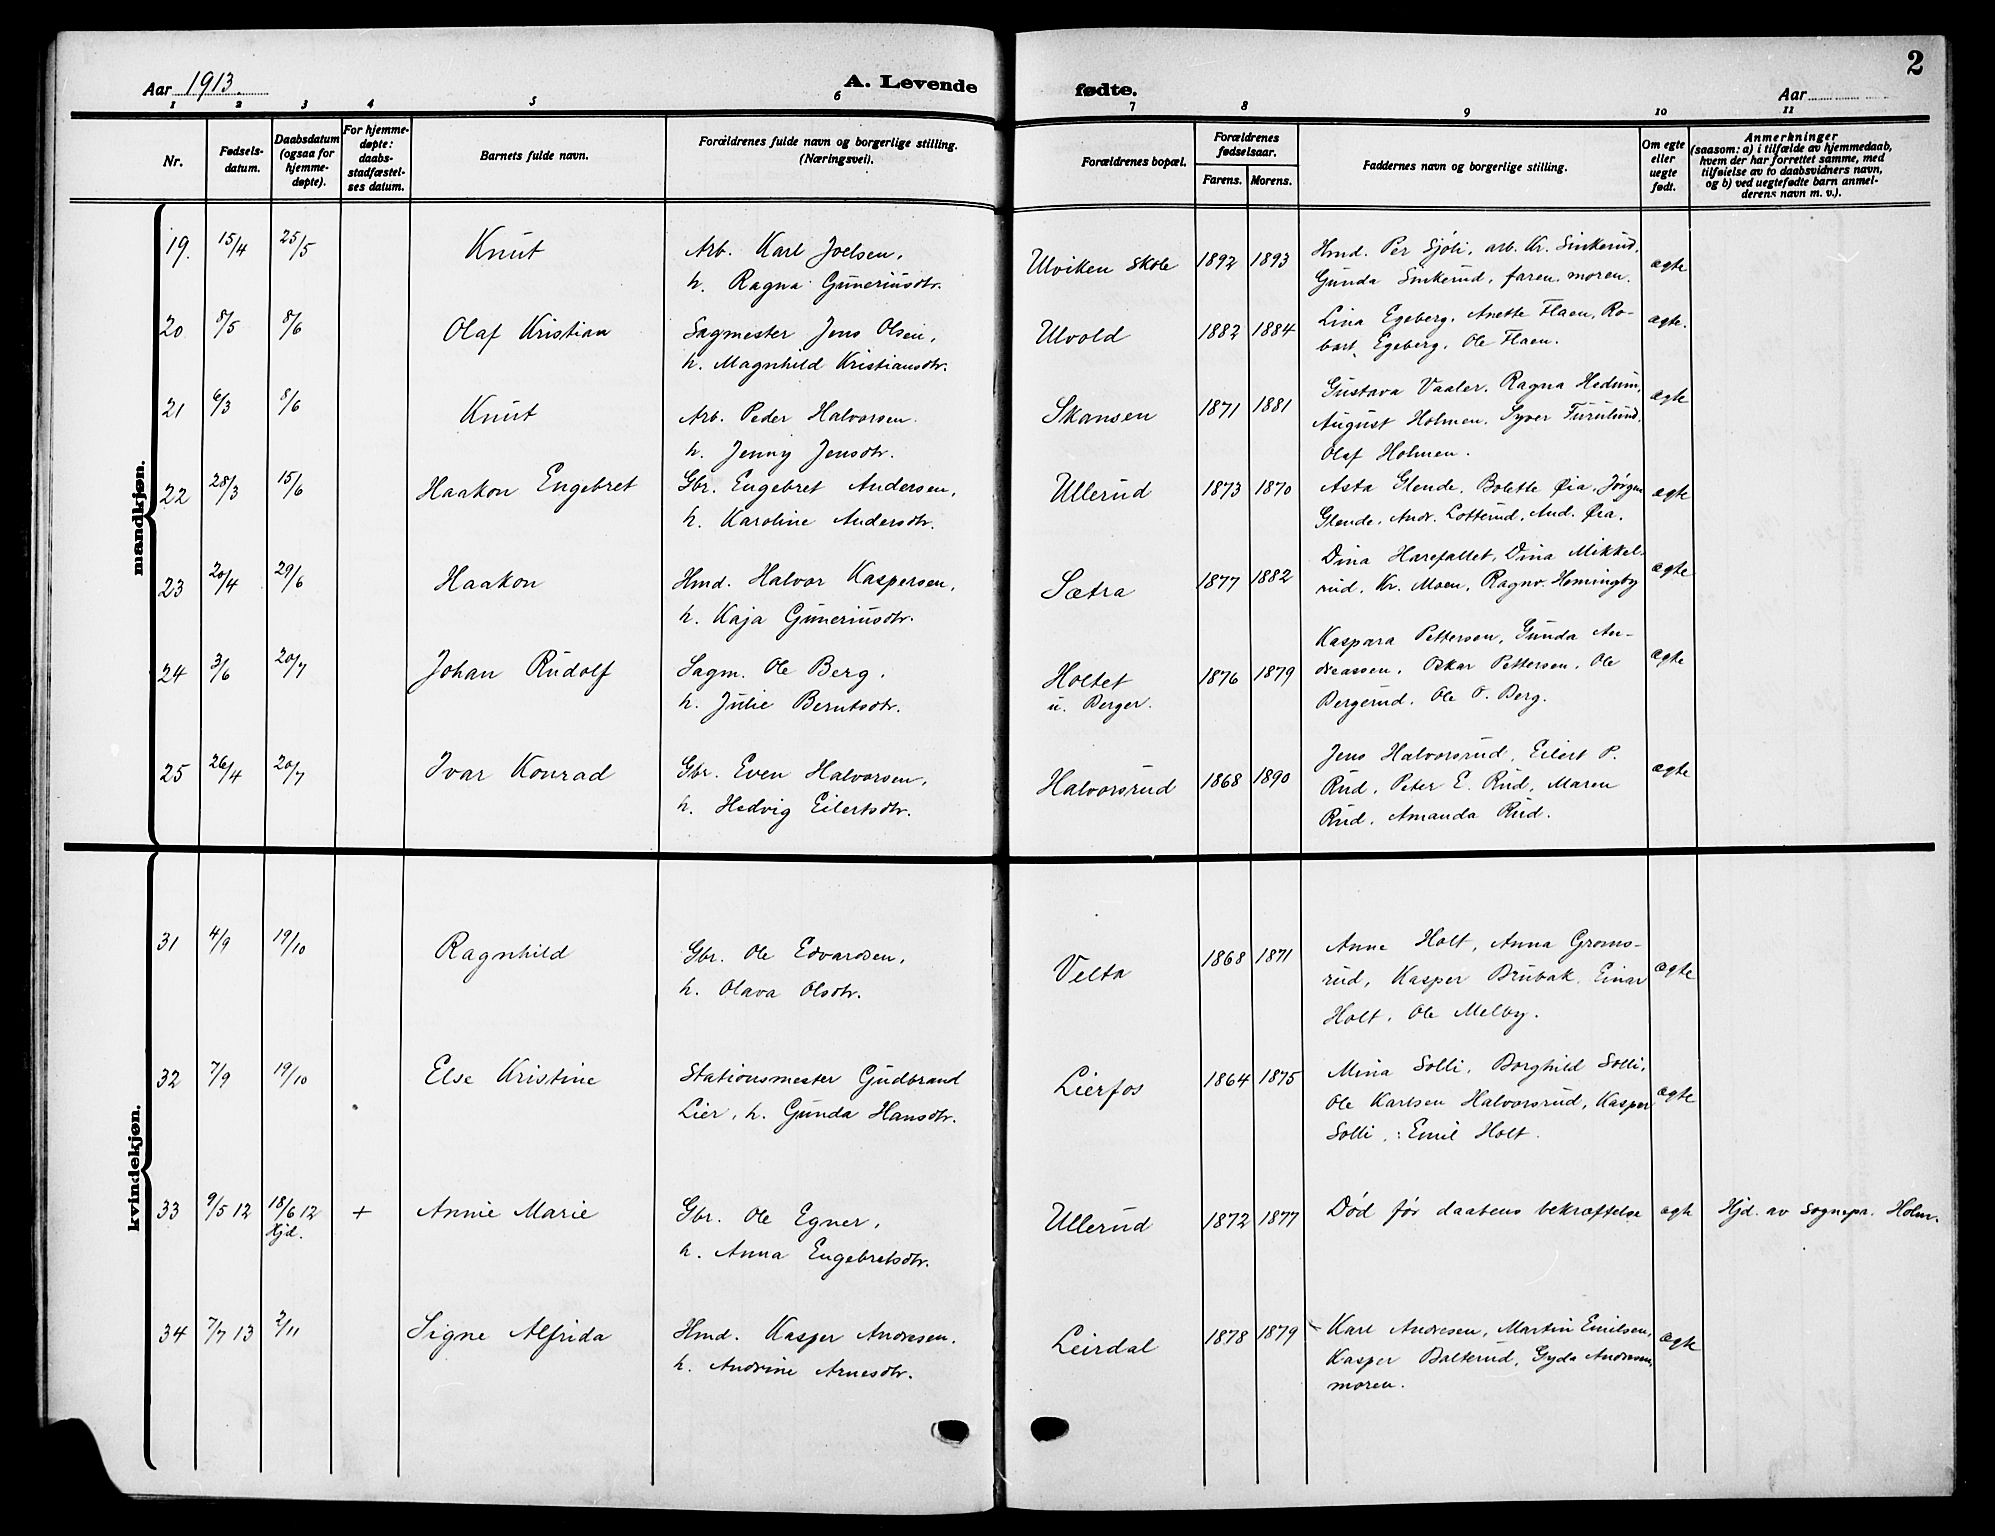 2
Aar 1913. A. Levende fødte. Aar
1 2 3 4 5 6 7 8 9 10 11
Nr.
Fødsels-
datum.
Daabsdatum
(ogsaa for
hjemme-
døpte).
For hjemme-
døpte:
daabs-
stadfæstel-
ses datum.
Barnets fulde navn.
Forældrenes fulde navn og borgerlige stilling.
(Næringsvei).
Forældrenes bopæl.
Forældrenes
fødselsaar.
Farens. Morens.
Faddernes navn og borgerlige stilling.
Om egte
eller
uegte
født.
Anmerkninger
(saasom: a) i tilfælde av hjemmedaab,
hvem der har forrettet samme, med
tilføielse av to daabsvidners navn,
og b) ved uegtefødte barn anmel-
derens navn m. v.).
mandkjøn.
19. 15/4 25/5 Knut Arb. Karl Joelsen, Ulviken skole 1892 1893 Hmd. Per Sjøli, arb. Kr. Sinkerud, ægte
h. Ragna Guneriusdtr. Gunda Sinkerud, faren, moren.
20 8/5 8/6 Olaf Kristian Sagmester Jens Olsen, Ulvold 1882 1884 Lina Egeberg, Anette Flaen, Ro- ægte.
h. Magnhild Kristiansdtr. bart Egeberg, Ole Flaen.
21 6/3 8/6 Knut Arb. Peder Halvorsen. Skansen 1871 1881 Gustava Vaaler, Ragna Hedum, ægte
h. Jenny Jensdtr. August Holmen, Syver Furulund,
Olaf Holmen.
22 28/3 15/6 Haakon Engebret Gbr. Engebret Andersen, Ullerud 1873 1870 Asta Glende, Bolette Øia, Jørgen ægte
h. Karoline Andersdtr. Glende, Andr. Lotterud, And. Øia.
23 20/4 29/6 Haakon Hmd. Halvor Kaspersen, Sætra 1877 1882 Dina Harefallet, Dina Mikkel- ægte
h. Kaja Guneriusdtr. rud, Kr. Moen, Ragnv. Hemingby
24 3/6 20/7 Johan Rudolf Sagm. Ole Berg, Holtet 1876 1879 Kaspara Pettersen, Gunda An- ægte
h. Julie Berntsdtr. u. Berger. dreassen, Oskar Pettersen, Ole
Bergerud, Ole O. Berg.
25 26/4 20/7 Ivar Konrad Gbr. Even Halvorsen, Halvorsrud 1868 1890 Jens Halvorsrud, Eilert P. ægte
h. Hedvig Eilertsdtr. Rud, Peter E. Rud, Maren
Rud, Amanda Rud.
kvindekjøn.
31 4/9 19/10 Ragnhild Gbr. Ole Edvardsen, Velta 1868 1871 Anne Holt, Anna Groms- ægte
h. Olava Olsdtr. rud, Kasper Brubak, Einar
Holt, Ole Melby.
32 7/9 19/10 Else Kristine Stationsmester Gudbrand Lierfos 1864 1875 Mina Solli, Borghild Solli, ægte
Lier, h. Gunda Hansdtr. Ole Karlsen Halvorsrud, Kasper
Solli, Emil Holt.
33 9/5 12 18/6 12 + Annie Marie Gbr. Ole Egner, Ullerud 1872 1877 Død før daabens bekræftelse ægte Hjd. av Sognepr. Holm.
Hjd. h. Anna Engebretsdtr.
34 7/7 13 2/11 Signe Alfrida Hmd. Kasper Andresen, Leirdal 1878 1879 Karl Andresen, Martin Emilsen, ægte
h. Andrine Arnesdtr. Kasper Balterud, Gyda Andresen,
moren.